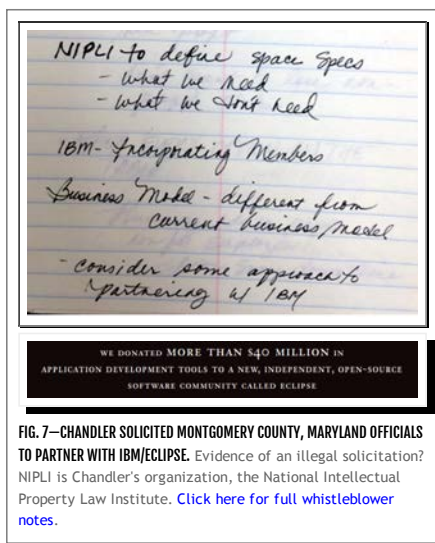 NIPLI to define space specs
- what we need
- what we don't need
IBM - Incorporating Members
Business Model - different from
current business model
- consider some approach to
partnering w/ IBM
WE DONATED MORE THAN $40 MILLION IN
APPLICATION DEVELOPMENT TOOLS TO A NEW, INDEPENDENT, OPEN-SOURCE
SOFTWARE COMMUNITY CALLED ECLIPSE
FIG. 7—CHANDLER SOLICITED MONTGOMERY COUNTY, MARYLAND OFFICIALS
TO PARTNER WITH IBM/ECLIPSE. Evidence of an illegal solicitation?
NIPLI is Chandler's organization, the National Intellectual
Property Law Institute. Click here for full whistleblower
notes.